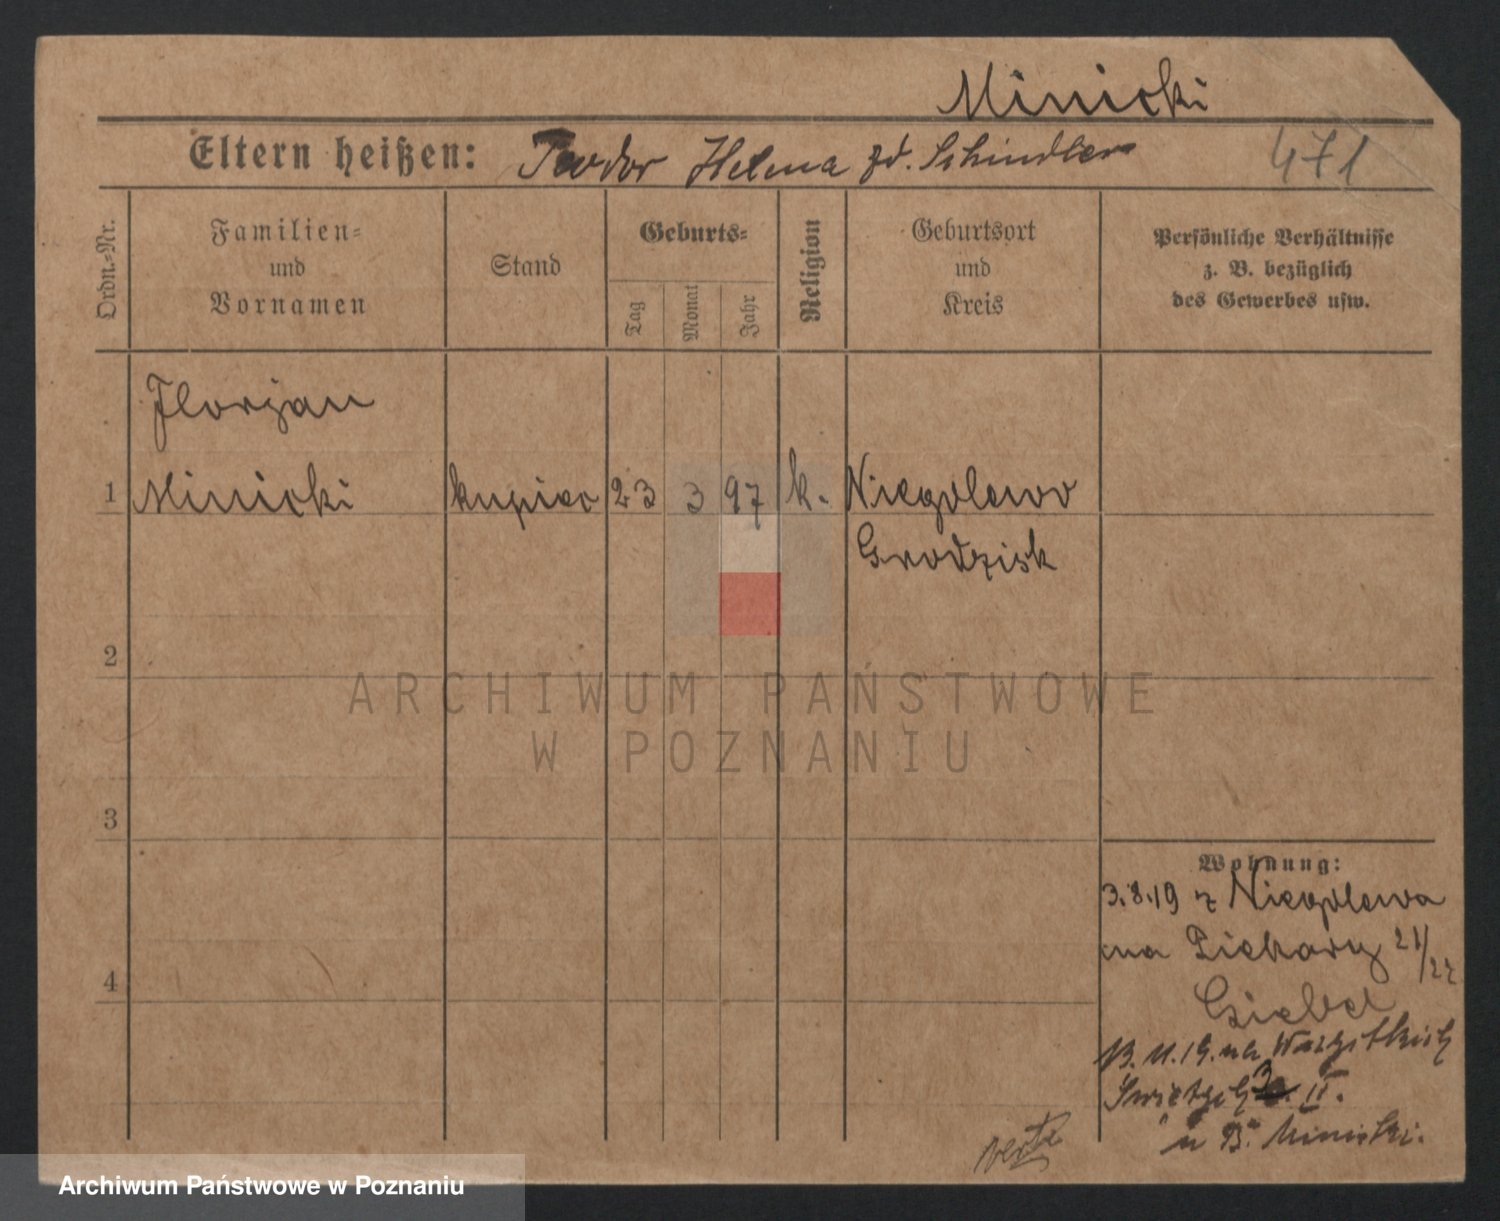 Minicki
Eltern heißen: Teodor Helena zd. Schindler
471
Ordn.-Nr.
Familien-
und
Vornamen
Stand
Geburts-
Tag
Monat
Jahr
Religion
Geburtsort
und
Kreis
Persönliche Verhältnisse
z. B. bezüglich
des Gewerbes usw.
Florjan
1 Minicki kupiec 23 3 97 k. Niegolewo
Grodzisk
2
ARCHIWUM PAŃSTWOWE
W POZNANIU
3
Wohnung:
3.8.19 z Niegolewa
na Piekary 21/22
Giebel
13.11.19. na Wszystkich
Świętych 3. II.
u B. Minicki.
verte
4
Archiwum Państwowe w Poznaniu